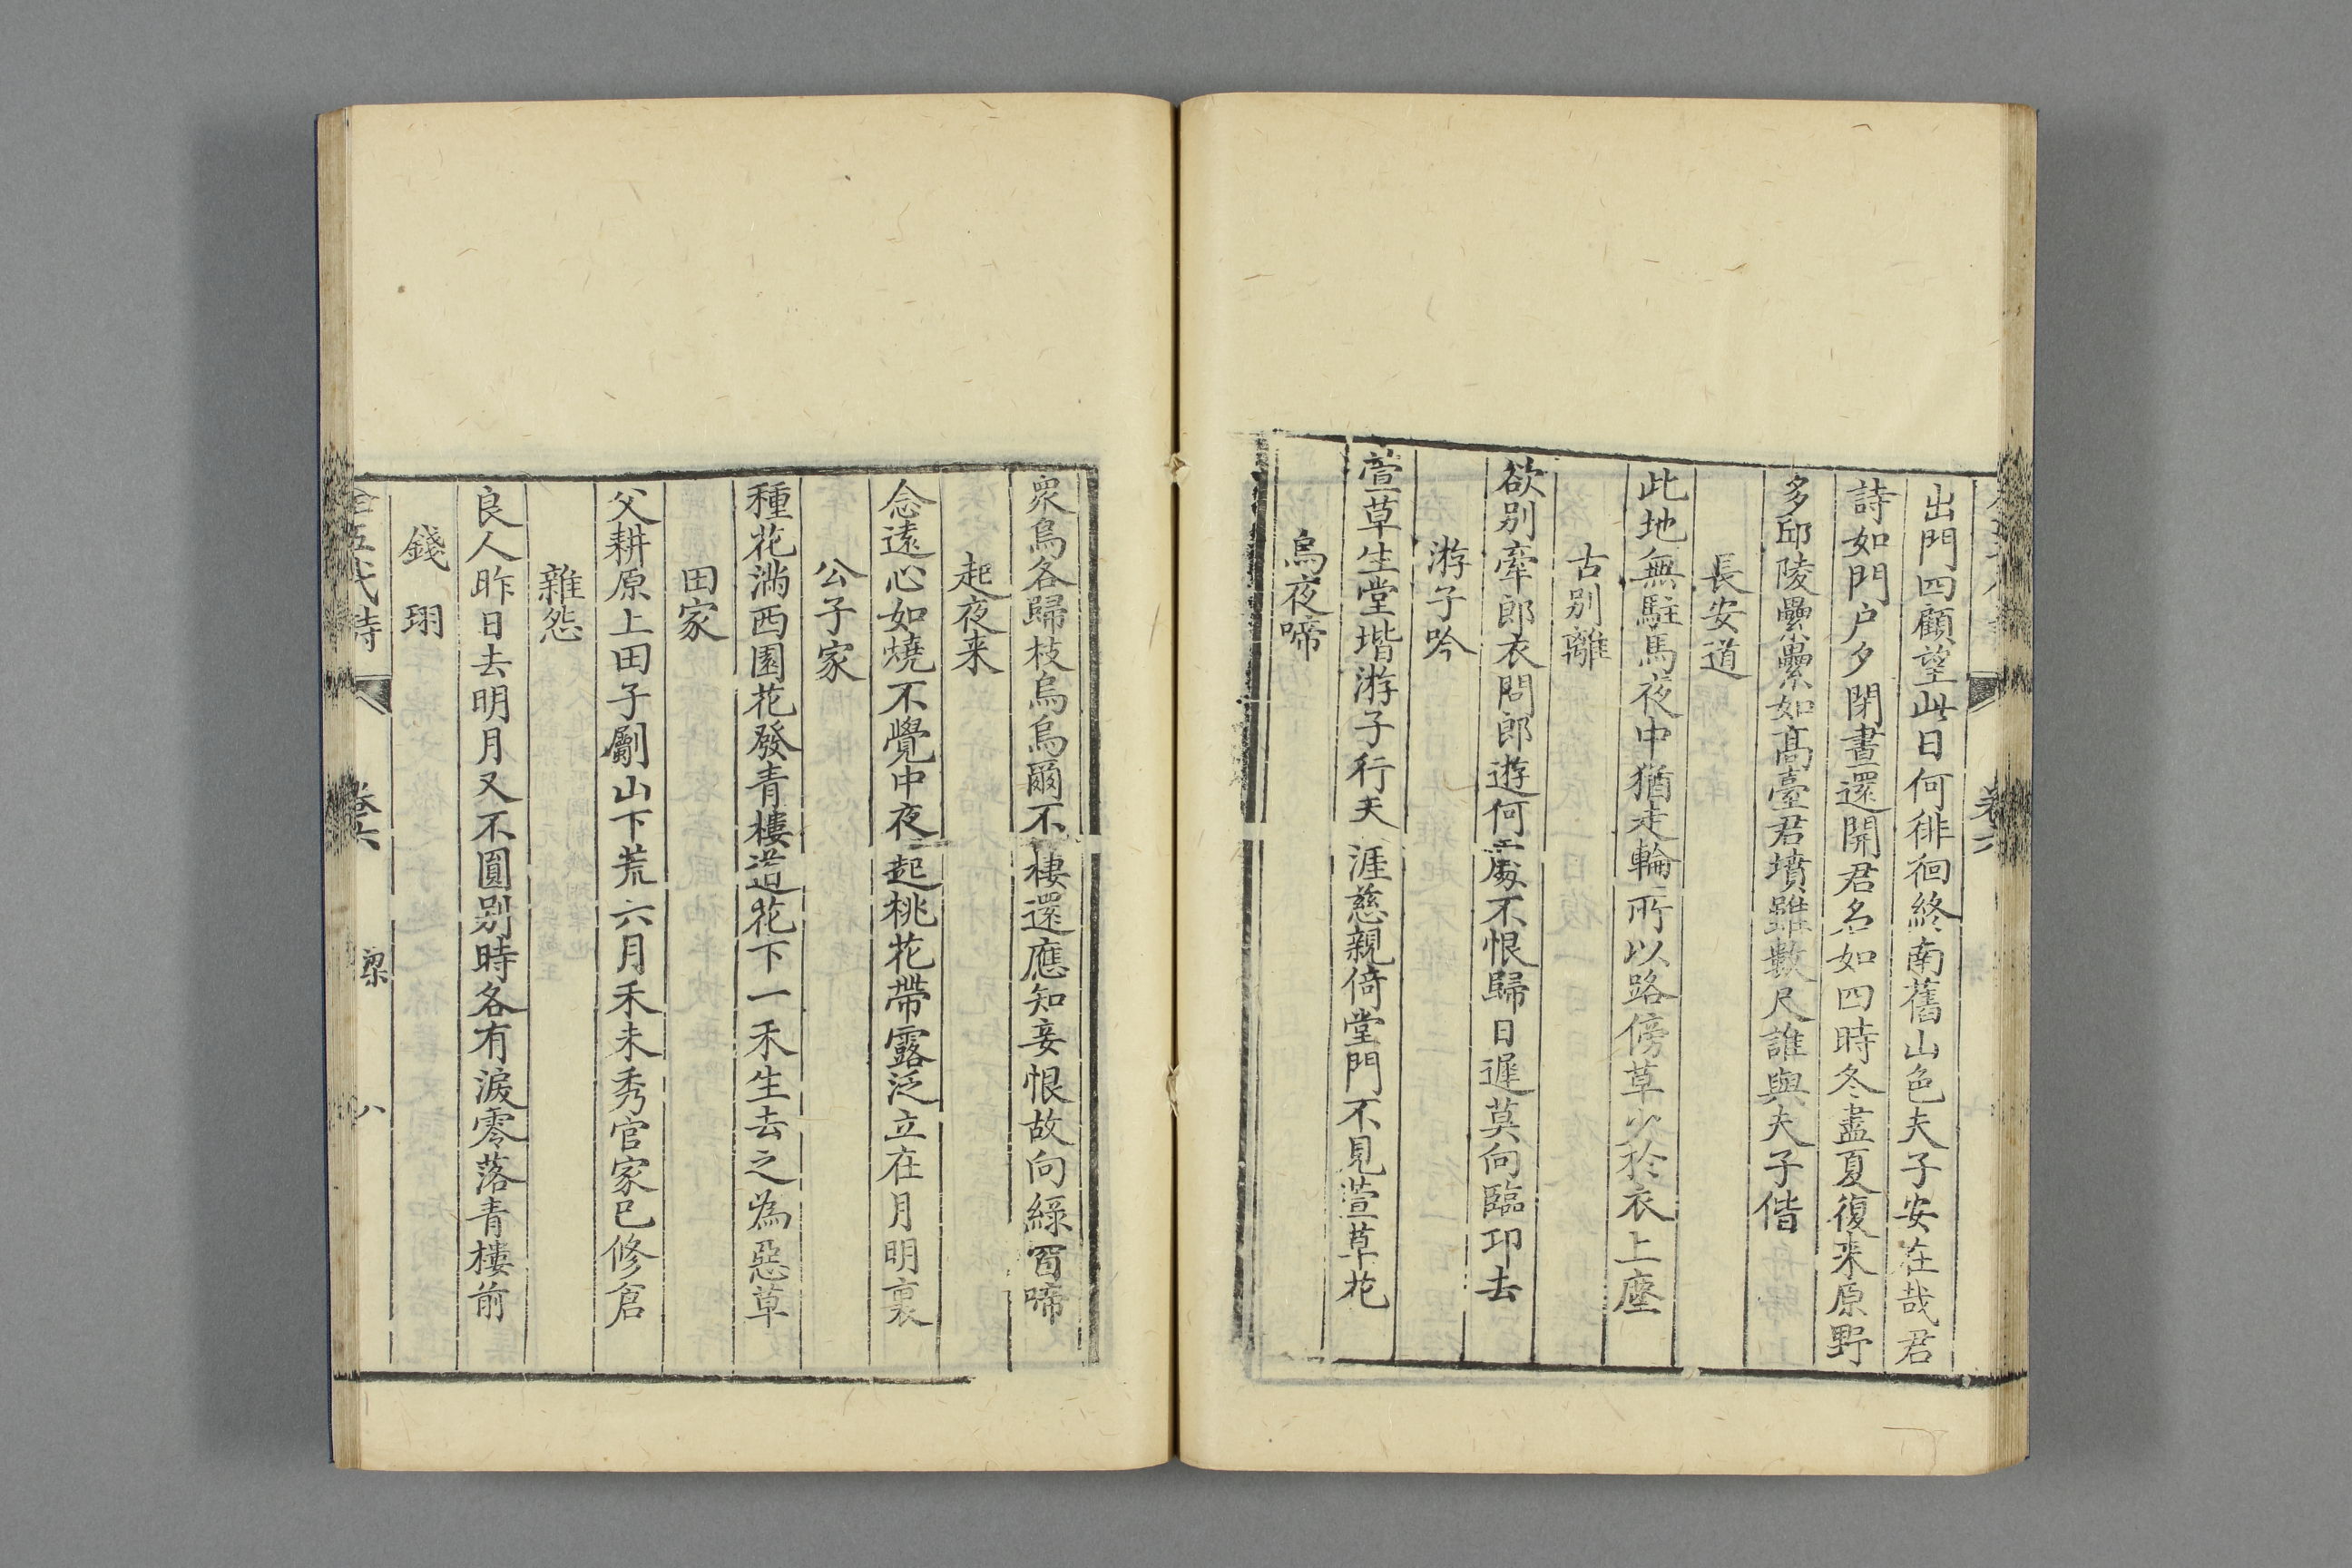 出門四顧望此日何徘徊終南舊山色夫子安在哉君
詩如門户夕閉晝還開君名如四時冬盡夏復来原野
多邱陵纍纍如高臺君墳雖數尺誰與夫子偕
長安道
此地無駐馬夜中猶走輪所以路傍草少於衣上塵
古别離
欲别牽郎衣問郎遊何處不恨歸日遲莫向臨邛去
游子吟
萱草生堂堦游子行天涯慈親倚堂門不見萱草花
烏夜啼
眾烏各歸枝烏烏爾不棲還應知妾恨故向綠窗啼
起夜来
念遠心如燒不覺中夜起桃花帶露泛立在月明裏
公子家
種花滿西園花發青樓道花下一禾生去之為惡草
田家
父耕原上田子劚山下荒六月禾未秀官家已修倉
雜怨
良人昨日去明月又不圓别時各有淚零落青樓前
錢珝
五代詩 卷六 梁 八